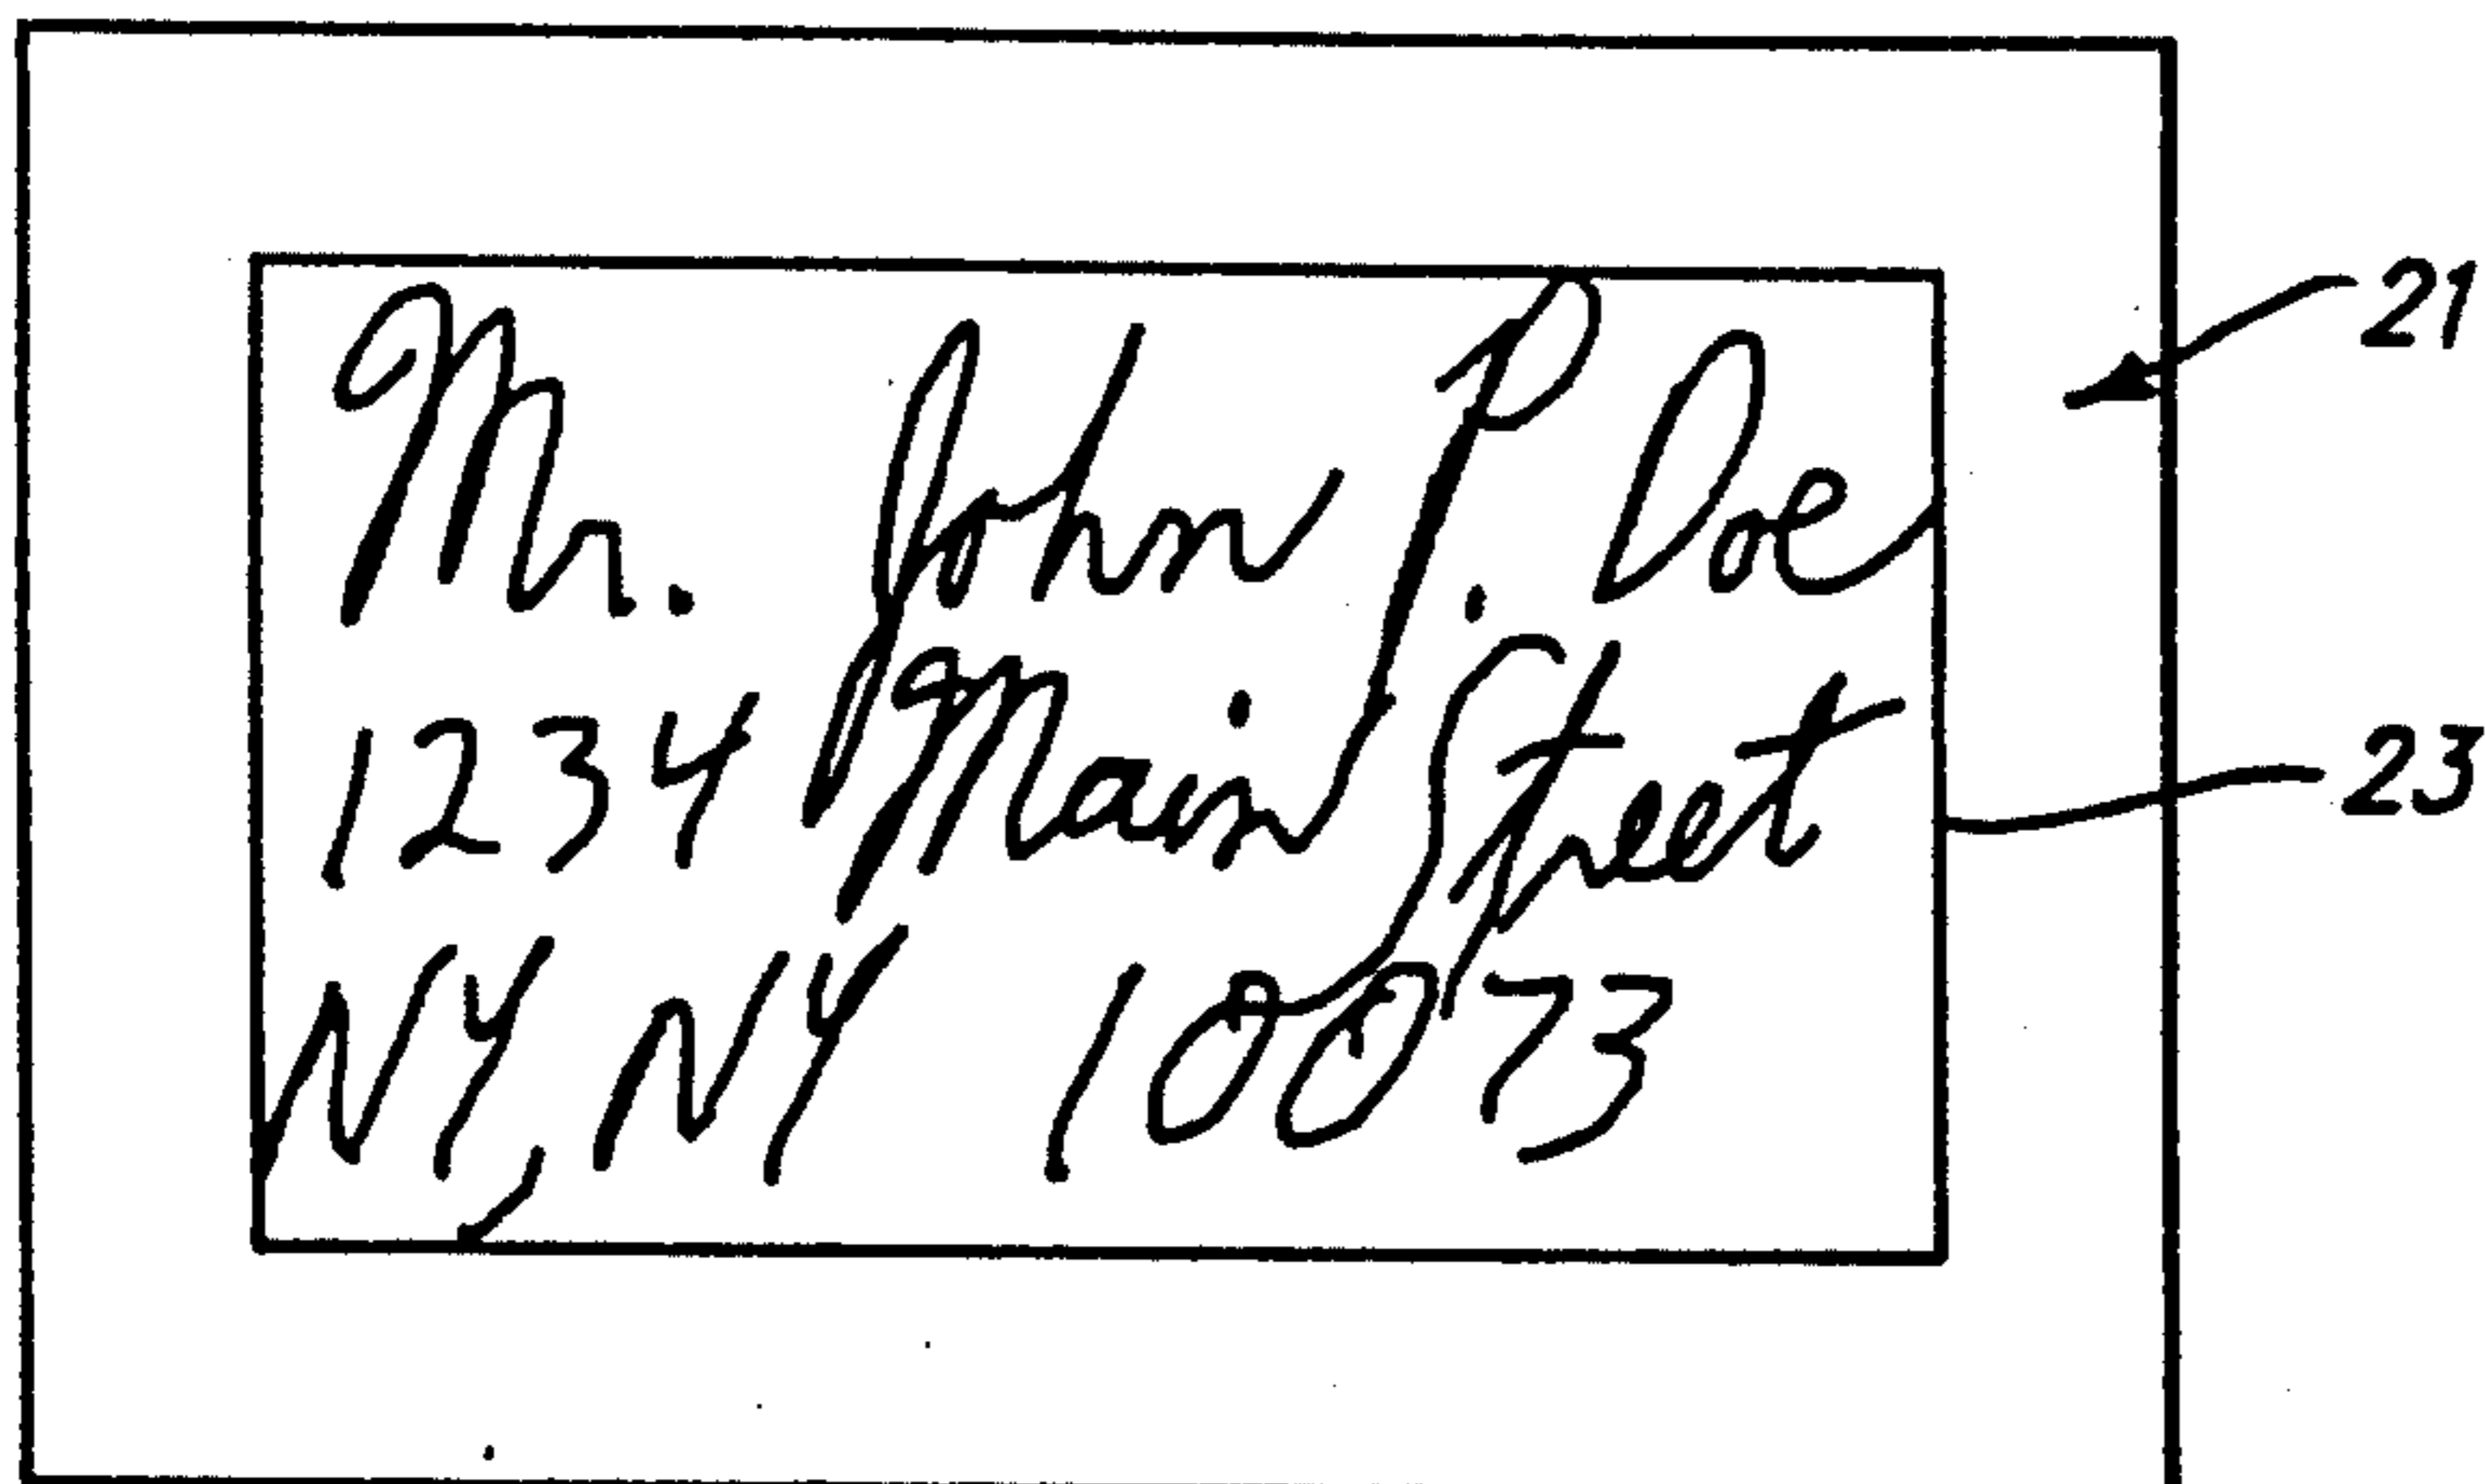 Mr. John P. Doe
1234 Main Street
NY, NY 10073
21
23